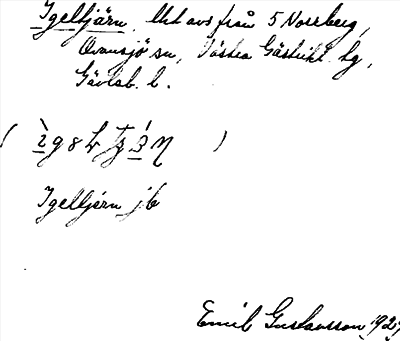 Igeltjärn. Utd avs från 5 Norrberg,
Ovansjö sn, Västra Gästrikl. hg,
Gävleb. l.
Igeltjärn jb
Emil Gustavsson 192